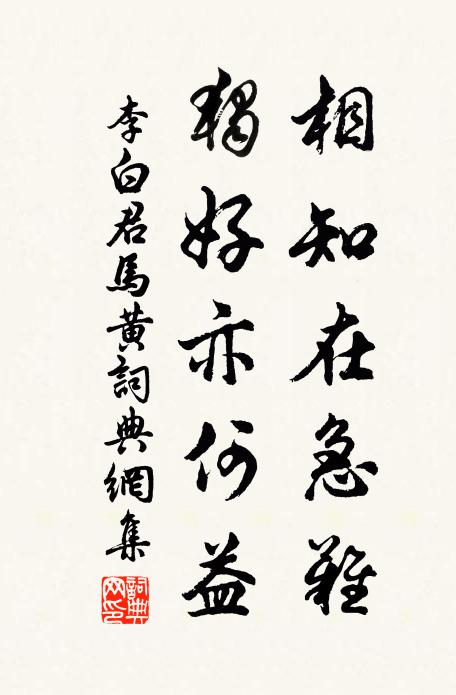 相知在急難
獨好亦何益
李白君馬黃詞典網集
詞典網印